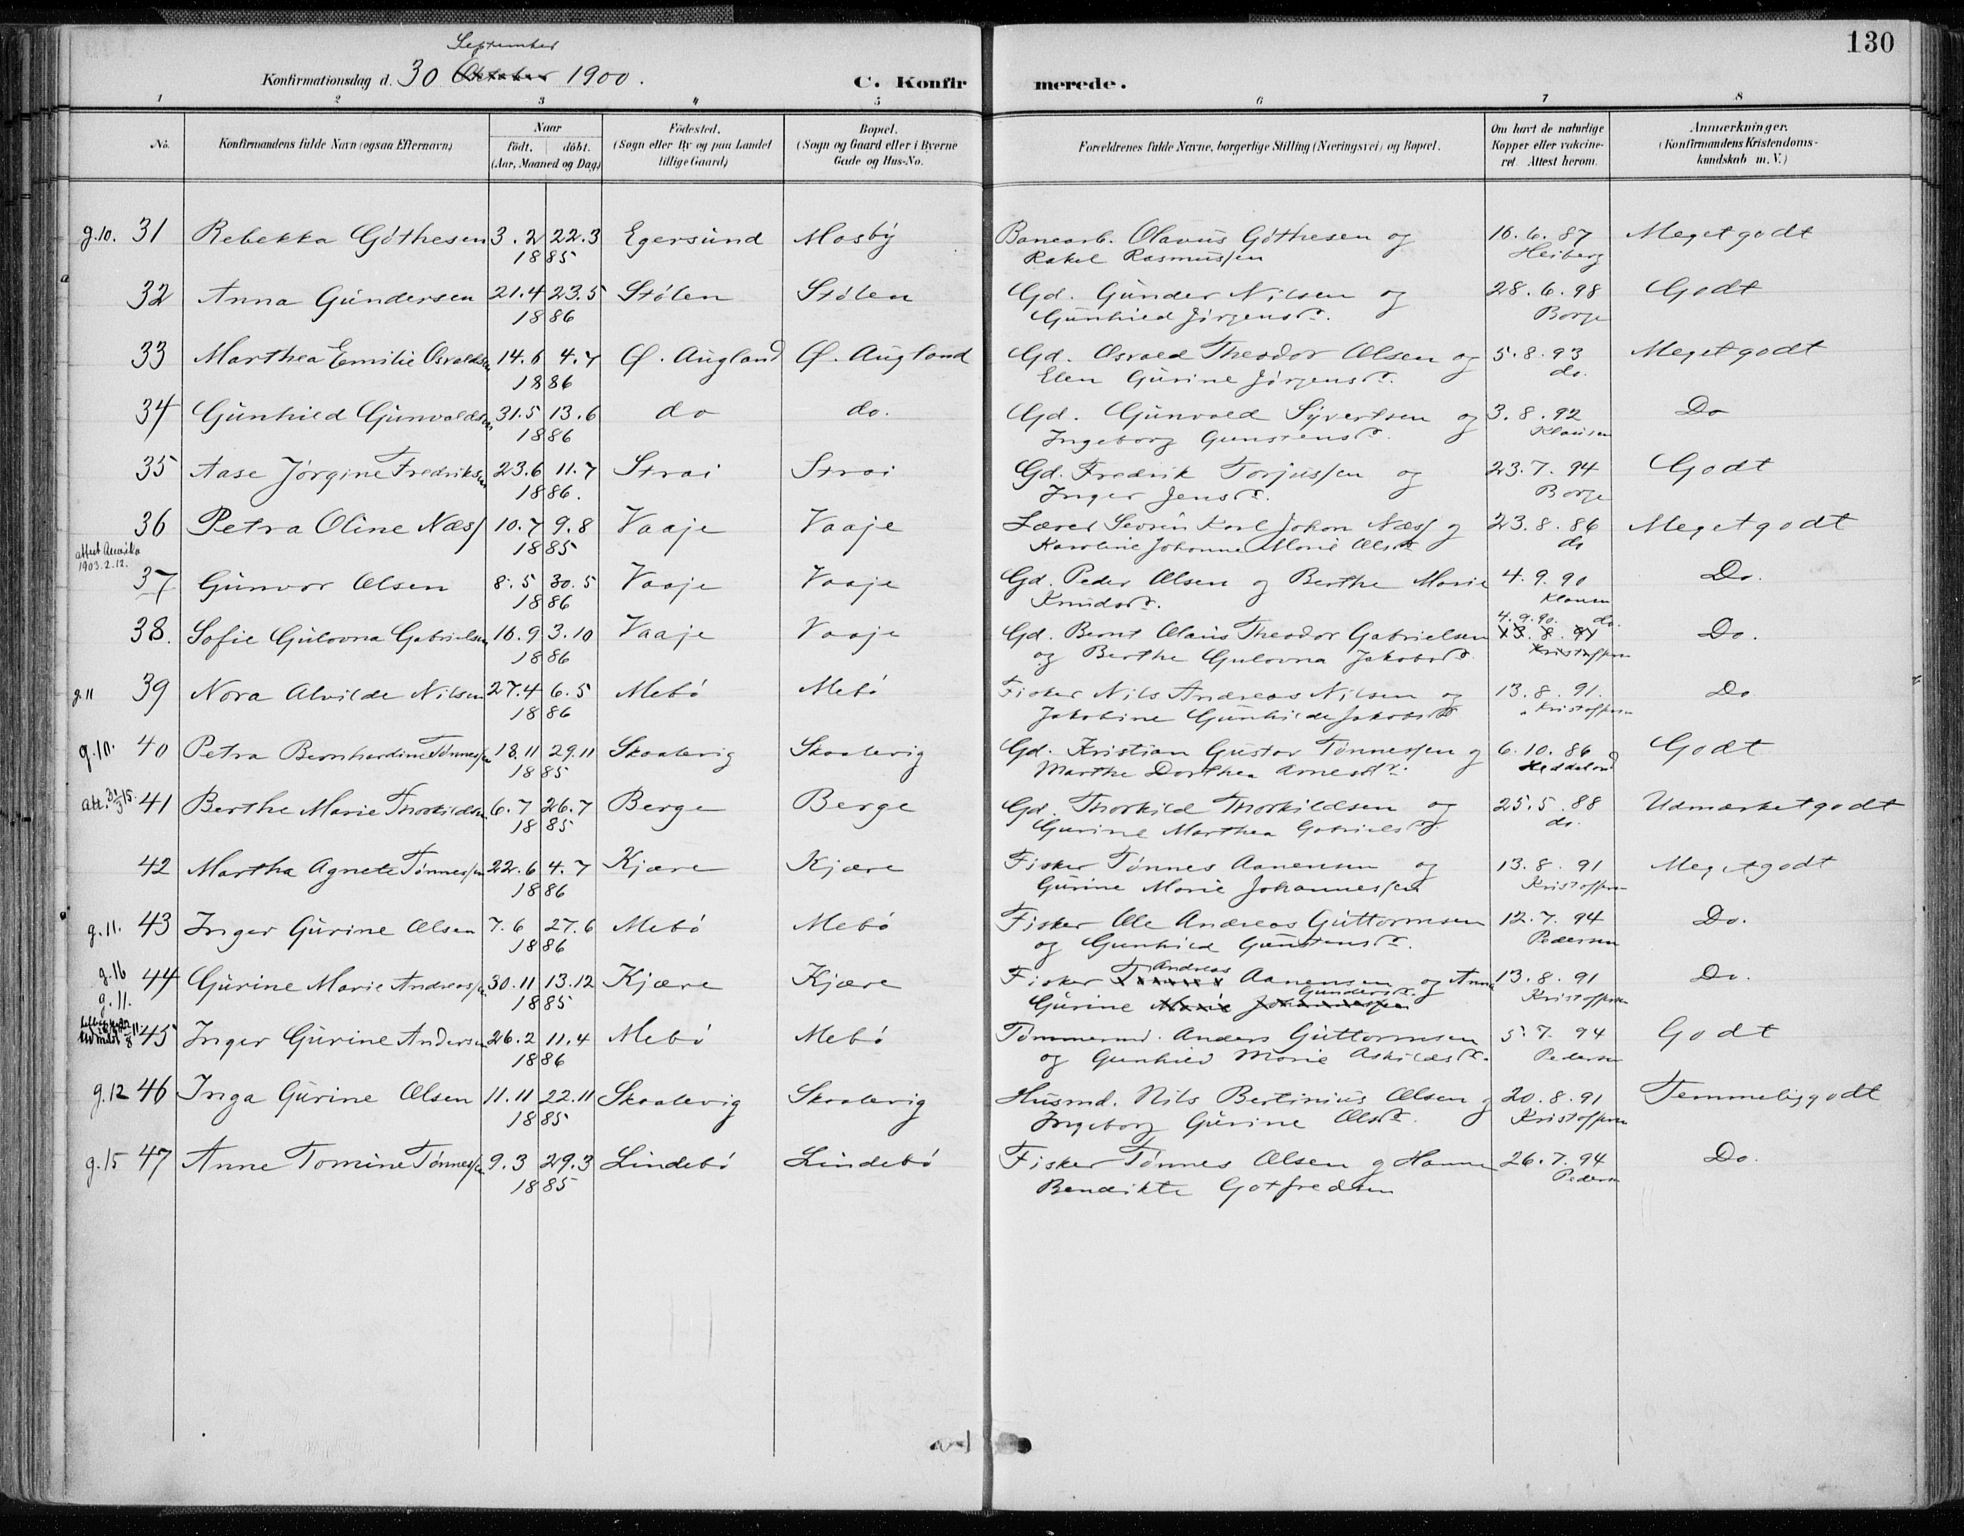 130
September
Konfirmationsdag d. 30 Oktober 1900.
C. Konfirmerede.
1 2 3 4 5 6 7 8
No. Konfirmandens fulde Navn (ogsaa Efternavn) Naar født. døbt. (Aar, Maaned og Dag) Fødested. (Sogn eller By og paa Landet tillige Gaard) Bopæl. (Sogn og Gaard eller i Byerne Gade og Hus-No. Forældrenes fulde Navne, borgerlige Stilling (Næringsvei) og Bopæl. Om havt de naturlige Kopper eller vakcineret. Attest herom. Anmærkninger. (Konfirmandens Kristendomskundskab m. V.)
g.10. 31 Rebekka Gøthesen 3.2 22.3 Egersund Mosby Banearb. Olavus Gøthesen og 16.6.87 Meget godt
1885 Rakel Rasmussen Heiberg
32 Anna Gundersen 21.4 23.5 Stølen Stølen Gd. Gunder Nilsen og 28.6.98 Godt
1886 Gunhild Jørgensd. Borge
33 Marthea Emilie Osvaldsen 14.6 4.7 Ø. Augland Ø. Augland Gd. Osvald Theodor Olsen og 5.8.93 Meget godt
1886 Elen Gurine Jørgensd. do.
34 Gunhild Gunvaldsen 31.5 13.6 do do. Gd. Gunvald Syvertsen og 3.8.92 Do
1886 Ingeborg Gunstensd. Klausen
35 Aase Jørgine Fredriksen 23.6 11.7 Strai Strai Gd. Fredrik Torjussen og 23.7.94 Godt
1886. Inger Jensd. Borge
36 Petra Oline Næss 10.7 9.8 Vaaje Vaaje Lærer Severin Karl Johan Næss og 23.8.86 Meget godt
1885 Karoline Johanne Marie Olsd. do
attest Amerika
1903.2.12.
37 Gunvor Olsen 8.5 30.5 Vaaje Vaaje Gd. Peder Olsen og Berthe Marie 4.9.90 Do.
1886 Knudsd. Klausen
38. Sofie Gulovna Gabrielsen 16.9 3.10 Vaaje Vaaje Gd. Bernt Olaus Theodor Gabrielsen 4.9.90. do. 13.8.91 Do.
1886 og Berthe Gulovna Jakobsd. Kristoffersen
g.11 39 Nora Alvilde Nilsen 27.4 6.5 Mebø Mebø Fisker Nils Andreas Nilsen og 13.8.91. Do
1886 Jakobine Gunhilde Jakobsd. Kristoffersen
g.10. 40 Petra Bernhardine Tønnessen 18.11 29.11 Skaalevig Skaalevig Gd. Kristian Gustav Tønnessen og 6.10.86 Godt
1885 Marthe Dorthea Arnesd. Heddeland
Att. 31/3 15. 41 Berthe Marie Thorkildsen 6.7 26.7 Berge Berge Gd. Thorkild Thorkildsen og 25.5.88 Udmærket godt
1885 Gurine Marthea Gabrielsd. do.
42 Martha Agnete Tønnessen 22.6 4.7 Kjære Kjære Fisker Tønnes Aanensen og 13.8.91 Meget godt
1886 Gurine Marie Johannessen Kristoffersen
g.11. 43 Inger Gurine Olsen 7.6 27.6 Mebø Mebø Fisker Ole Andreas Guttormsen 12.7.94 Do.
1886 og Gunhild Gunstensd. Pedersen
g.16 44 Gurine Marie Andreassen 30.11 13.12 Kjære Kjære Fisker Tønnes Andreas Aanensen og Anne 13.8.91 Do.
g.11. 1885 Gurine Marie Johannessen Gundersd. Kristoffersen
45 Inger Gurine Andersen 26.2 11.4 Mebø Mebø Tømmermd. Anders Guttormsen 5.7.94 Godt
1886 og Gunhild Marie Askildsd. Pedersen
g.12 46 Inga Gurine Olsen 11.11 22.11 Skaalevig Skaalevig Husmd. Nils Bertinius Olsen og 20.8.91 Temmelig godt
1885 Ingeborg Gurine Olsd. Kristoffersen
g.15 47 Anne Tomine Tønnessen 9.3 29.3 Lindebø Lindebø Fisker Tønnes Olsen og Hanne 26.7.94 Do.
1885 Bendikte Gotfredsen Pedersen